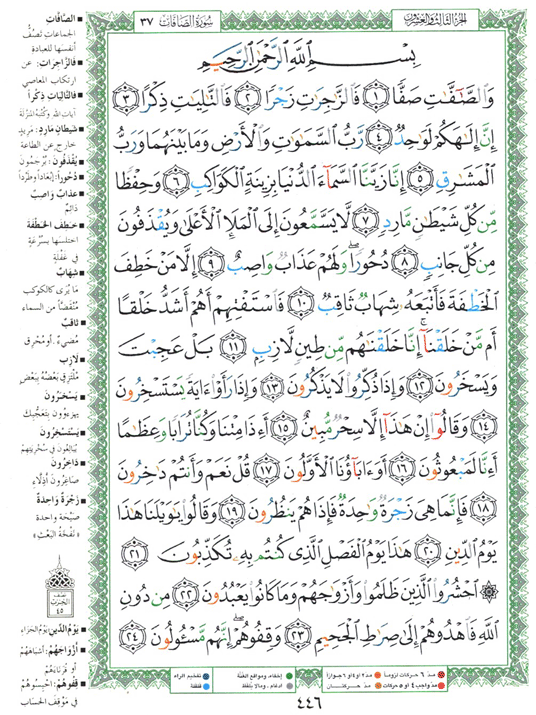 الجزء الثالث والعشرون
سورة الصافات ٣٧
بِسْمِ ٱللَّهِ ٱلرَّحْمَٰنِ ٱلرَّحِيمِ
وَٱلصَّٰٓفَّٰتِ صَفًّا ١ فَٱلزَّٰجِرَٰتِ زَجْرًا ٢ فَٱلتَّٰلِيَٰتِ ذِكْرًا ٣
إِنَّ إِلَٰهَكُمْ لَوَٰحِدٌ ٤ رَّبُّ ٱلسَّمَٰوَٰتِ وَٱلْأَرْضِ وَمَا بَيْنَهُمَا وَرَبُّ
ٱلْمَشَٰرِقِ ٥ إِنَّا زَيَّنَّا ٱلسَّمَآءَ ٱلدُّنْيَا بِزِينَةٍ ٱلْكَوَاكِبِ ٦ وَحِفْظًا
مِّن كُلِّ شَيْطَٰنٍ مَّارِدٍ ٧ لَّا يَسَّمَّعُونَ إِلَى ٱلْمَلَإِ ٱلْأَعْلَىٰ وَيُقْذَفُونَ
مِن كُلِّ جَانِبٍ ٨ دُحُورًا ۖ وَلَهُمْ عَذَابٌ وَاصِبٌ ٩ إِلَّا مَنْ خَطِفَ
ٱلْخَطْفَةَ فَأَتْبَعَهُۥ شِهَابٌ ثَاقِبٌ ١٠ فَٱسْتَفْتِهِمْ أَهُمْ أَشَدُّ خَلْقًا
أَم مَّنْ خَلَقْنَآ ۚ إِنَّا خَلَقْنَٰهُم مِّن طِينٍ لَّازِبٍ ١١ بَلْ عَجِبْتَ
وَيَسْخَرُونَ ١٢ وَإِذَا ذُكِّرُوا۟ لَا يَذْكُرُونَ ١٣ وَإِذَا رَأَوْا۟ ءَايَةً يَسْتَسْخِرُونَ
١٤ وَقَالُوٓا۟ إِنْ هَٰذَآ إِلَّا سِحْرٌ مُّبِينٌ ١٥ أَءِذَا مِتْنَا وَكُنَّا تُرَابًا وَعِظَٰمًا
أَءِنَّا لَمَبْعُوثُونَ ١٦ أَوَءَابَآؤُنَا ٱلْأَوَّلُونَ ١٧ قُلْ نَعَمْ وَأَنتُمْ دَٰخِرُونَ
١٨ فَإِنَّمَا هِىَ زَجْرَةٌ وَٰحِدَةٌ فَإِذَا هُمْ يَنظُرُونَ ١٩ وَقَالُوا۟ يَٰوَيْلَنَا هَٰذَا
يَوْمُ ٱلدِّينِ ٢٠ هَٰذَا يَوْمُ ٱلْفَصْلِ ٱلَّذِى كُنتُم بِهِۦ تُكَذِّبُونَ ٢١
۞ ٱحْشُرُوا۟ ٱلَّذِينَ ظَلَمُوا۟ وَأَزْوَٰجَهُمْ وَمَا كَانُوا۟ يَعْبُدُونَ ٢٢ مِن دُونِ
ٱللَّهِ فَٱهْدُوهُمْ إِلَىٰ صِرَٰطِ ٱلْجَحِيمِ ٢٣ وَقِفُوهُمْ ۖ إِنَّهُم مَّسْـُٔولُونَ ٢٤
الصافات
الجماعات تصف
أنفسها للعبادة
فالزاجرات: عن
ارتكاب المعاصي
فالتاليات ذكرا
آيات الله وكتبه المنزلة
شيطان مارد: مريد
خارج عن الطاعة
يقذفون: يرجمون
دحورا: إبعادا وطردا
عذاب واصب
دائم
خطف الخطفة
اختلسها بسرعة
في غفلة
شهاب
ما يرى كالكوكب
منقضا من السماء
ثاقب
مضيء. أو محرق
لازب
ملتزق بعضه ببعض
يسخرون
يهزءون بتعجبك
يستسخرون
يبالغون في سخريتهم
داخرون
صاغرون أذلاء
زجرة واحدة
صيحة واحدة
« نفخة البعث »
نصف
الحزب
٤٥
يوم الدين يوم الجزاء
أزواجهم: أشباههم
أو قرناءهم
قفوهم: احبسوهم
في موقف الحساب
مد ٦ حركات لزوما
مد ٢ أو ٤ أو ٦ جوازا
إخفاء، ومواقع الغنة
تفخيم الراء
مد واجب ٤ أو ٥ حركات
مد حركتان
إدغام، وما لا يلفظ
قلقلة
٤٤٦